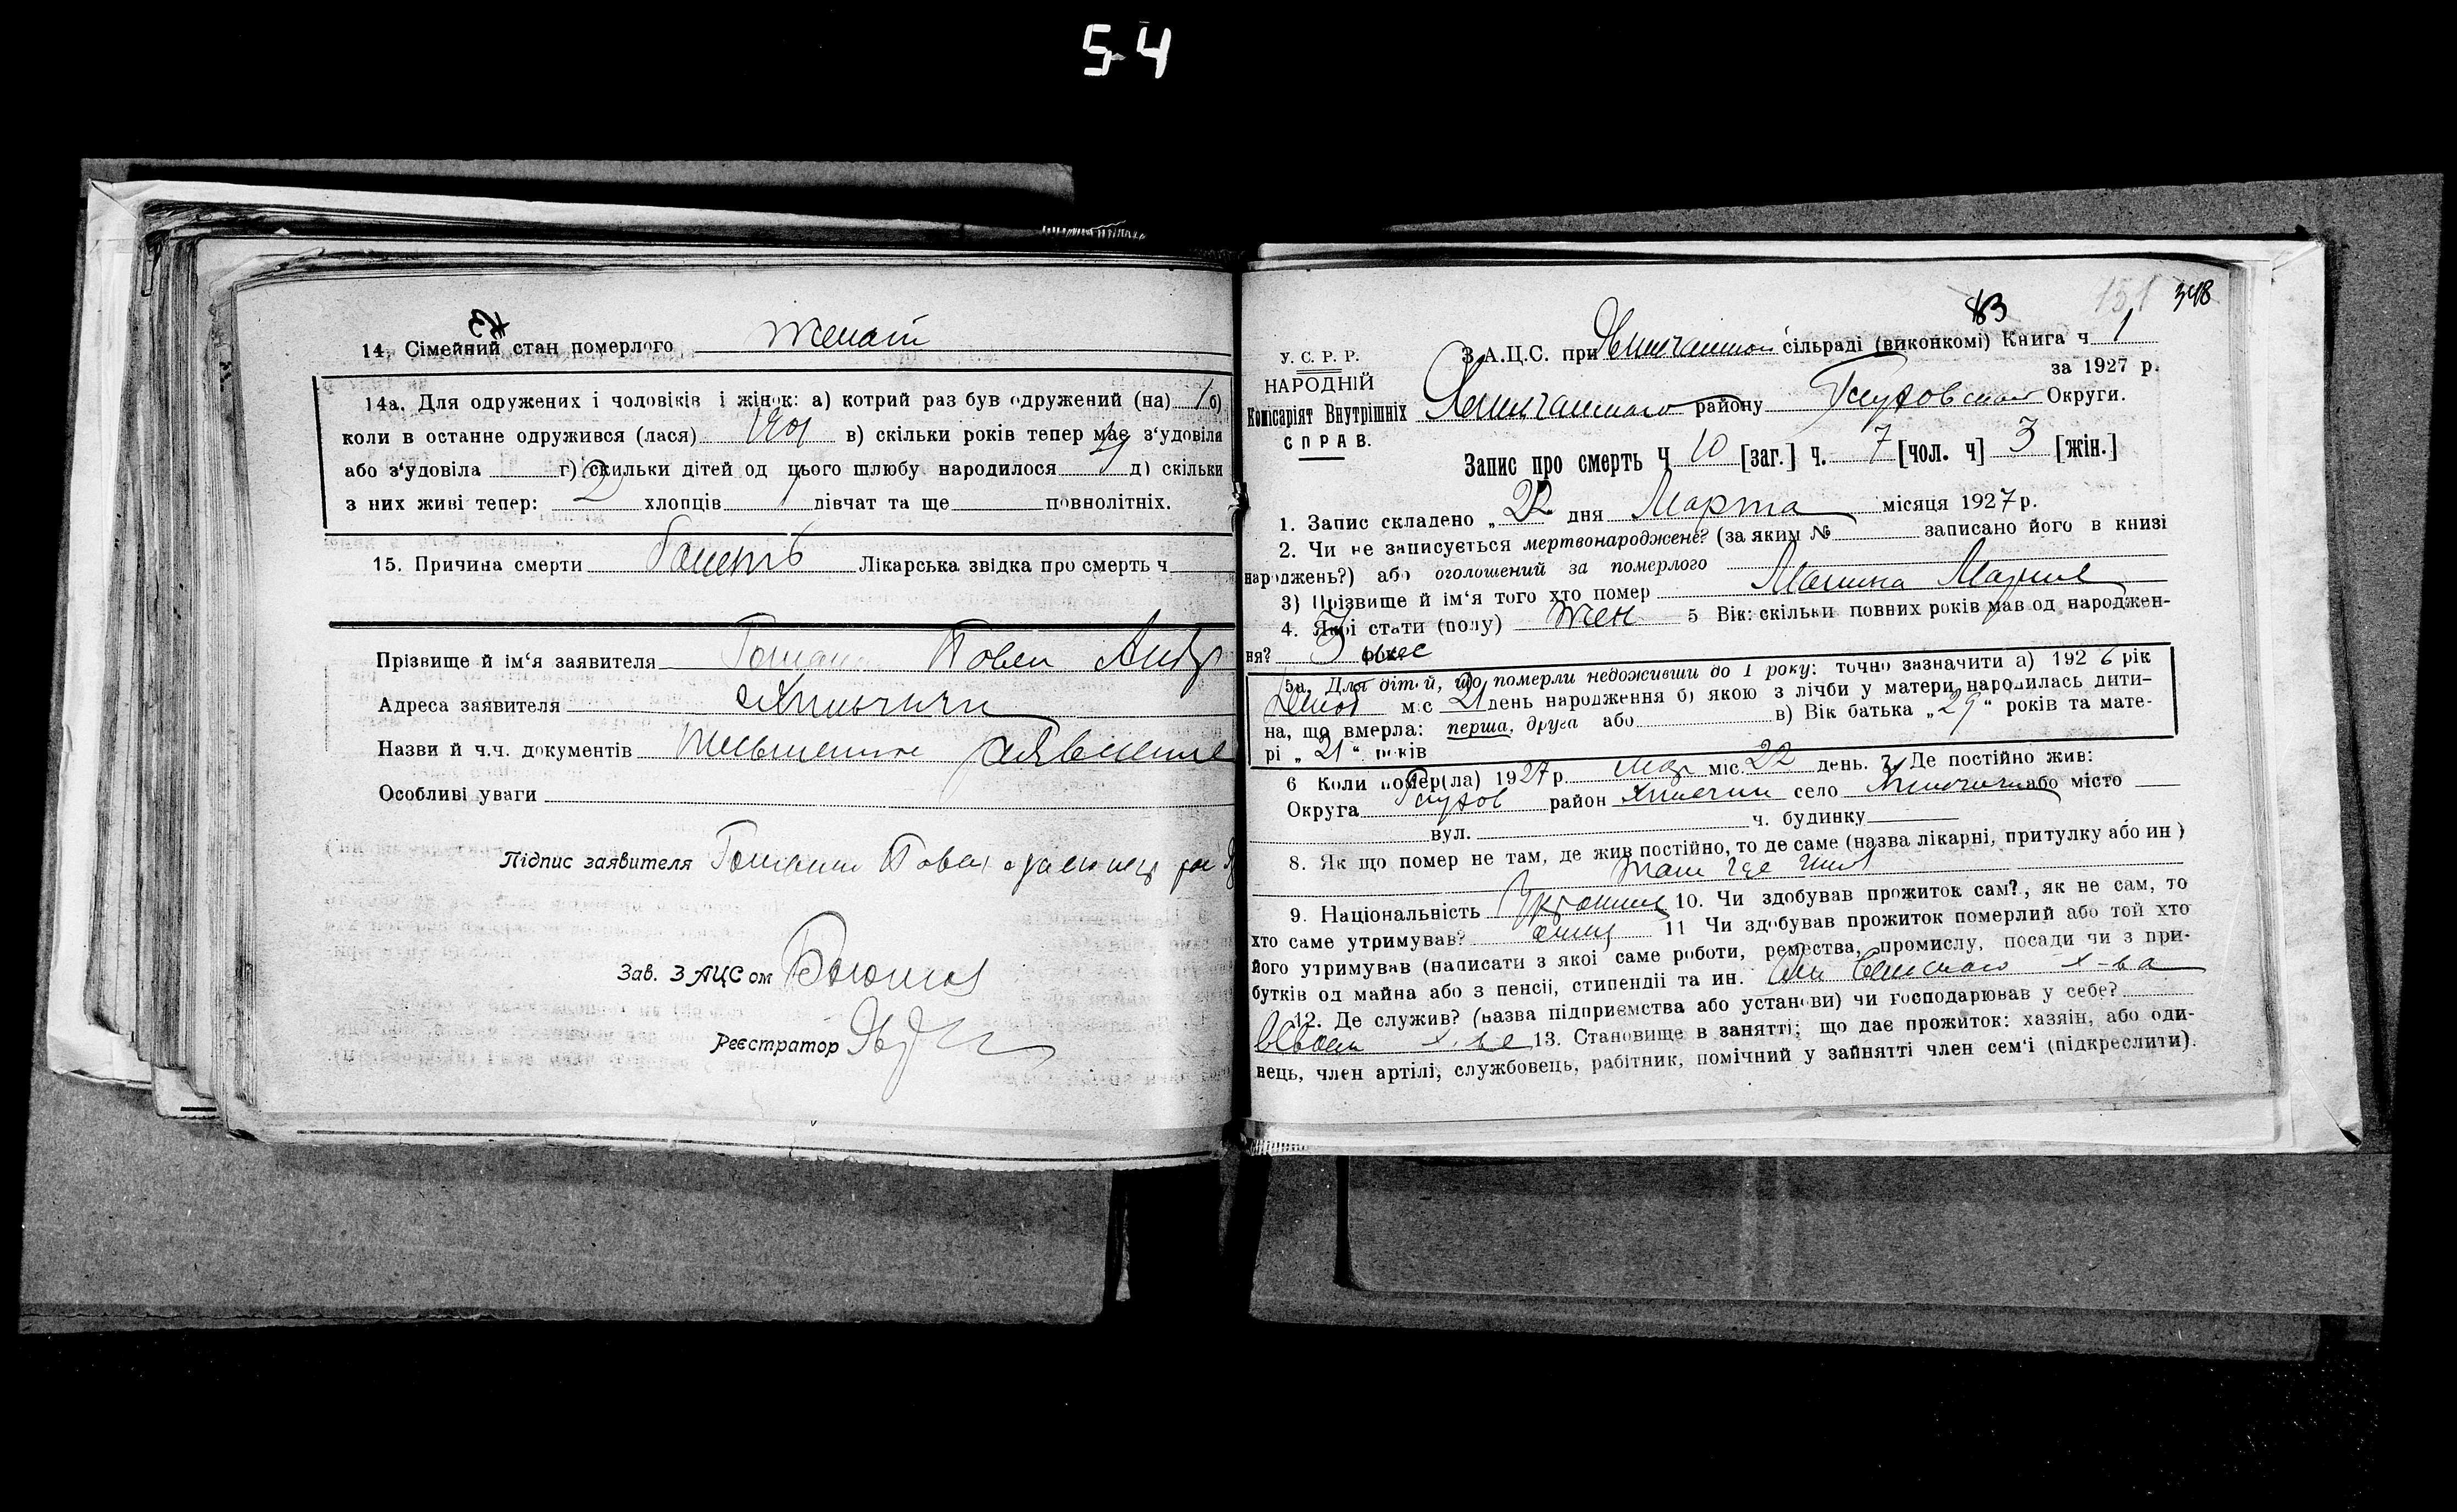 54
14. Сімейний стан померлого Женат
14а. Для одружених і чоловіків і жінок: а) котрий раз був одружений (на) 1 б)
коли в останне одружився (лася) 1901 в) скільки років тепер має з‘удовіла
або з‘удовіла г) скильки дітей од цього шлюбу народилося д) скільки
з них живі тепер: 2 хлопців 1 дівчат та ще повнолітніх.
15. Причина смерти Лікарська звідка про смерть ч
Прізвище й ім‘я заявителя Павел Андр
Адреса заявителя Хильчичи
Назви й ч.ч. документів заявление
Особливі уваги
Підпис заявителя Павел
Зав. ЗАЦСом
Реєстратор
83 151 348
У. С. Р. Р.
НАРОДНІЙ
Комісаріят Внутрішніх
СПРАВ.
З.А.Ц.С. при сільраді (виконкомі) Книга ч 1
за 1927 р.
району Глуховской Округи.
Запис про смерть Ч 10 [заг.] ч. 7 [чол. ч] 3 [жін.]
1. Запис складено „ 22 дня Марта місяця 1927 р.
2. Чи не записується мертвонароджене? (за яким № записано його в книзі
народжень?) або оголошений за померлого
3) Прізвище й ім‘я того хто помер Мария
4. Якої стати (полу) жен 5 Вік: скільки повних років мав од народжен-
ня? 3 мес
5а. Для дітей, що померли недоживши до 1 року: точно зазначити а) 1926 рік
м-с 21 день народження б) якою з лічби у матери народилась дити-
на, що вмерла: перша, друга або в) Вік батька „29“ років та мате-
рі „21“ років
6 Коли помер(ла) 1927 р. мар міс. 22 день. 7. Де постійно жив:
Округа Глухов район Хильчич село Хильчичи або місто
вул. ч. будинку
8. Як що помер не там, де жив постійно, то де саме (назва лікарні, притулку або ин)
там где жил
9. Національність 10. Чи здобував прожиток сам?, як не сам, то
хто саме утримував? отец 11 Чи здобував прожиток померлий або той хто
його утримував (написати з якої саме роботи, ремества, промислу, посади чи з при-
бутків од майна або з пенсії, стипендії та ин. От сельского х-ва
12. Де служив? (назва підприємства або установи) чи господарював у себе?
в своем х-ве 13. Становище в занятті; що дає прожиток: хазяін, або оди-
нець, член артілі, службовець, рабітник, помічний у зайнятті член сем‘і (підкреслити).